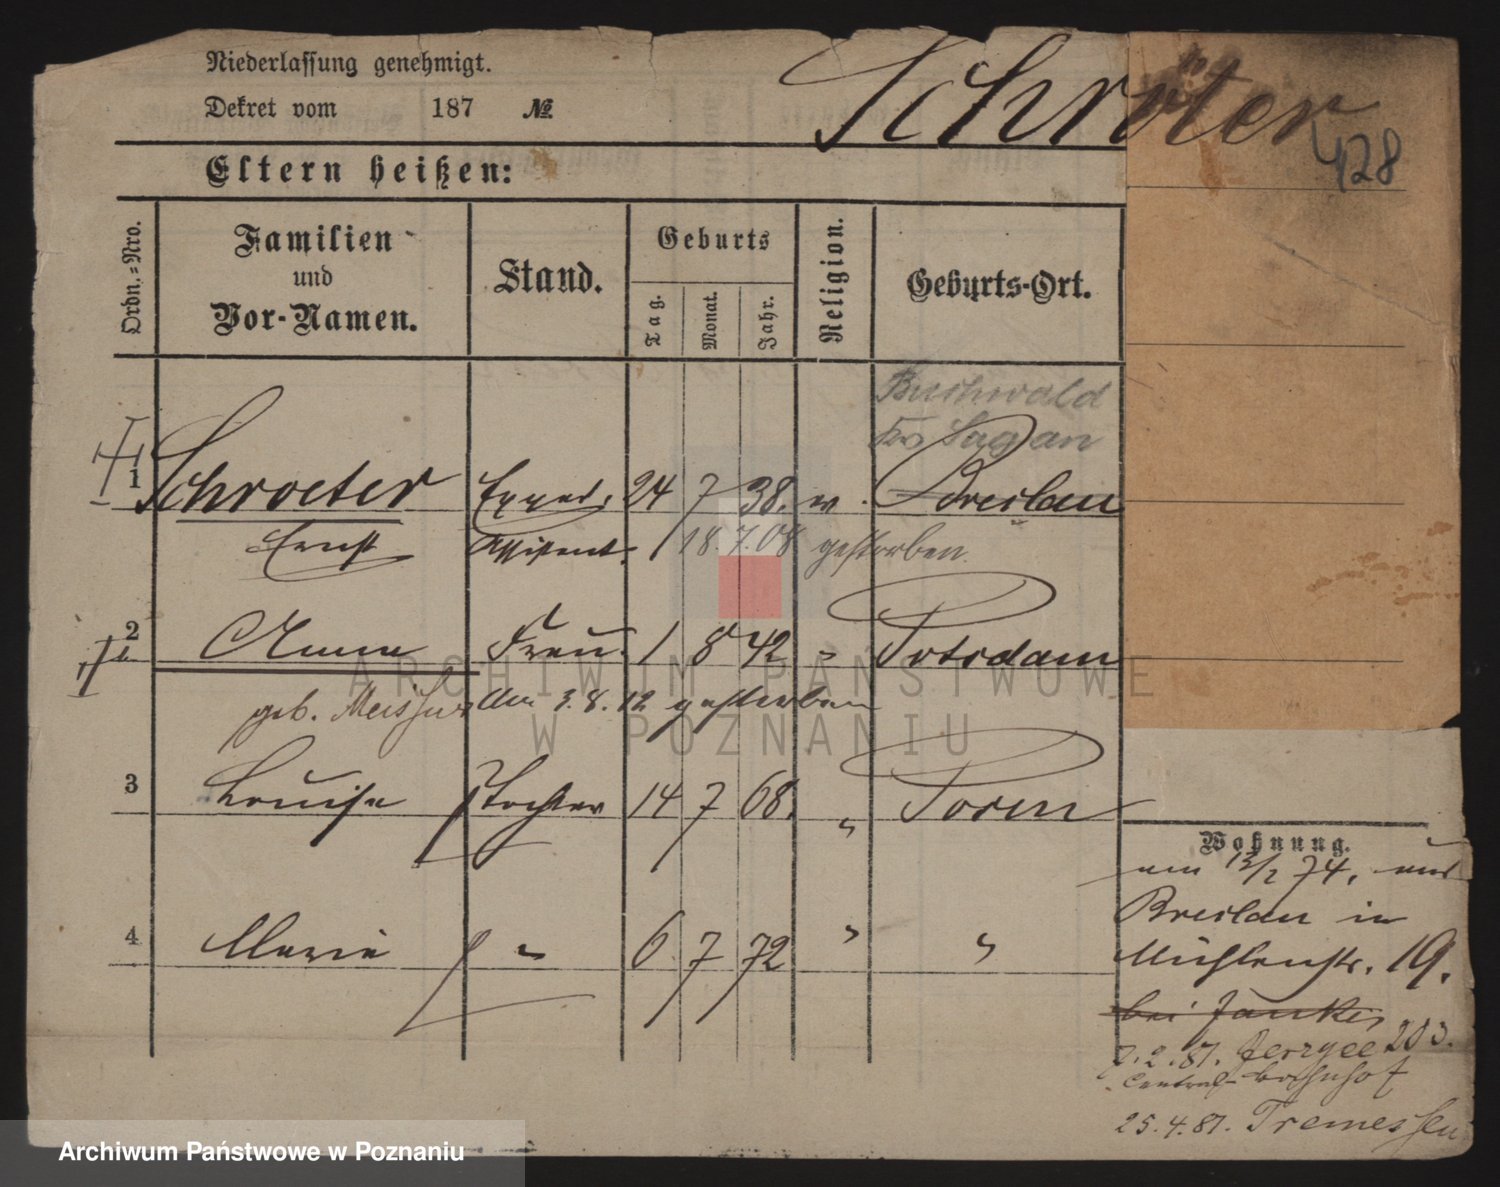 Niederlassung genehmigt.
Dekret vom 187 №
Schröter
428
Eltern heißen:
Ordn.=Nro.
Familien und Vor-Namen.
Stand.
Geburts
Tag.
Monat.
Jahr.
Religion.
Geburts-Ort.
Buchwald
Krs Sagan
1 Schroeter Exped. 24 7 38. ev. Breslau
Ernst Assistent. 18.7.08 gestorben.
2 Anna Frau 1 8 42 " Potsdam
geb. Meissner den 3.8.12 gestorben
3 Louise Tochter 14 7 68. " Posen
4 Marie " 6 7 72 " "
Wohnung.
am 13/2 74. aus
Breslau in
Mühlenstr. 19.
bei Jankes
7.2.81. Jerzyce 203.
Central-Bahnhof
25.4.81. Tremessen
ARCHIWUM PAŃSTWOWE
W POZNANIU
Archiwum Państwowe w Poznaniu